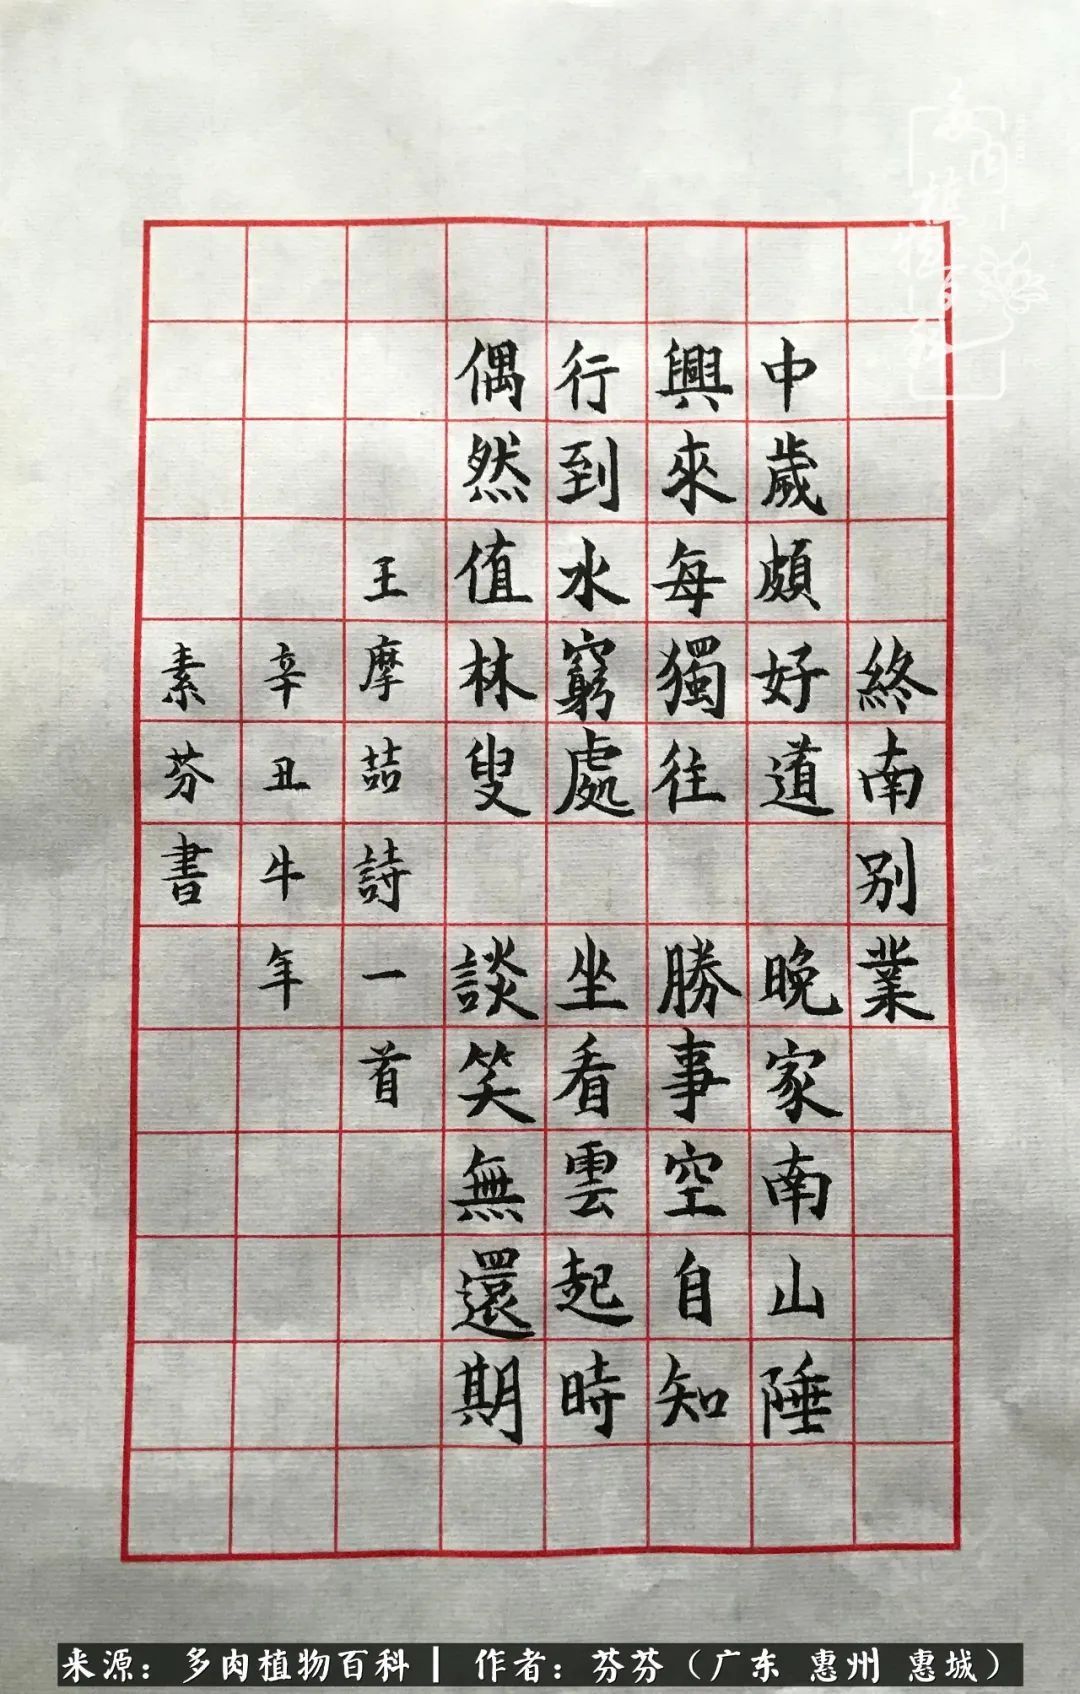 終南别業
中歲頗好道 晚家南山陲
興來每獨往 勝事空自知
行到水窮處 坐看雲起時
偶然值林叟 談笑無還期
王摩喆詩一首
辛丑牛年
素芬書
多肉植物百科
来源：多肉植物百科 | 作者：芬芬（广东 惠州 惠城）